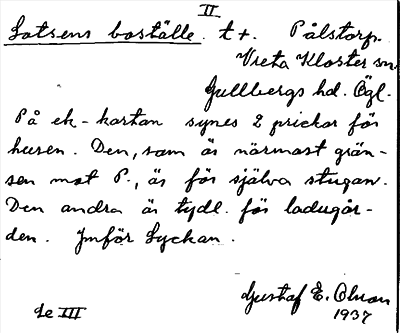 II
Lotsens boställe. t+. Pålstorp.
Vreta Kloster sn.
Gullbergs hd. Ögl.
På ek-kartan synes 2 prickar för
husen. Den, som är närmast grän-
sen mot P., är för själva stugan.
Den andra är tydl. för ladugår-
den. Jmför Lyckan.
Gustaf E. Olsson
1937
de III